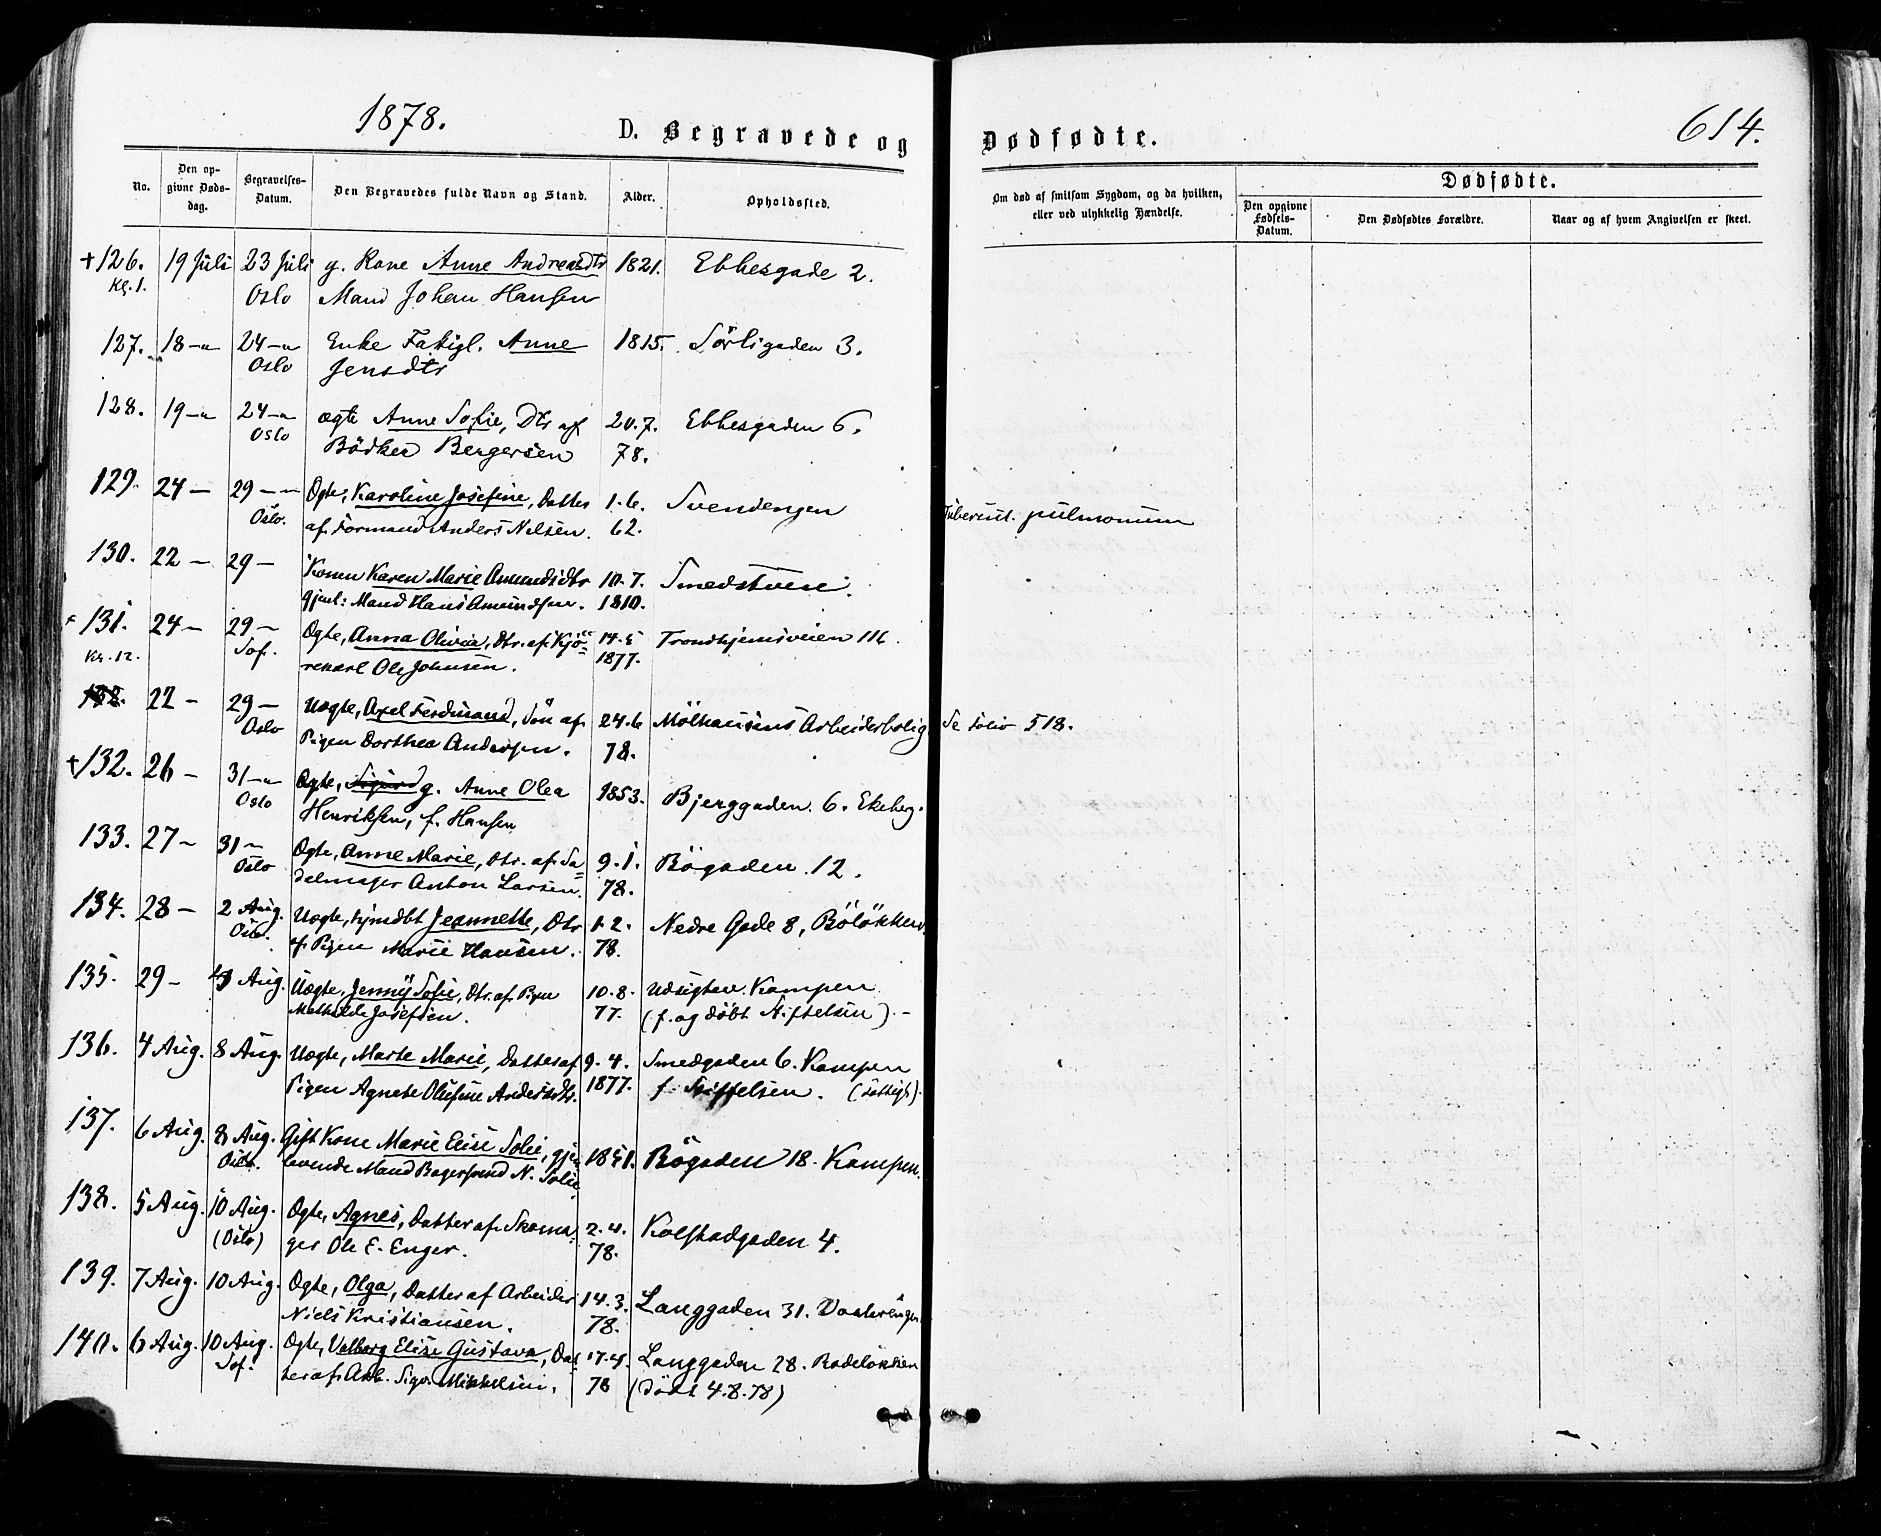 1878.
D. Begravede og Dødfødte.
614.
No.
Den opgivne Døds-dag.
Begravelses-Datum.
Den Begravedes fulde Navn og Stand.
Alder.
Opholdssted.
Om død af smitsom Sygdom, og da hvilken, eller ved ulykkelig Hændelse.
Dødfødte.
Den opgivne Fødsels-Datum.
Den Dødfødtes Forældre.
Naar og af hvem Angivelsen er skeet.
+126. 19 Juli 23 Juli g. Kone Anne Andreasdtr 1821. Ebbesgade 2.
Kl. 1. Oslo Mand Johan Hansen
127. 18 - 24 - Enke Fatigl. Anne 1815. Sörligaden 3.
Oslo Jensdtr
128. 19 - 24 - ægte Anne Sofie, Dtr af 20.7. Ebbesgaden 6.
Oslo Bödker Bergersen 78.
129. 24 - 29 - Ægte, Karoline Josefine, Datter 1.6. Svendengen Tubercul. pulmonum
Oslo. af Formand Anders Nilsen. 62.
130. 22 - 29 - Konen Karen Marie Amundsdtr 10.7. Smedstuen.
gjenl: Mand Hans Amundsen. 1810.
131. 24 - 29 - Ægte, Anna Olivia, Dtr. af Kjö- 14.5 Trondhjemsveien 116.
Kl. 12. Sof. rekarl Ole Johnsen. 1877.
132. 22 - 29 - Uægte, Axel Ferdinand, Sön af 24.6 Mölhausens Arbeiderbolig Se folio 518.
Oslo Pigen Dorthea Andersen. 78.
+132. 26 - 31 - Ægte, Sigurd g. Anne Olea 1853. Bjerggaden 6. Ekeberg.
Oslo Henriksen, f. Hansen
133. 27 - 31 - Ægte, Anne Marie, Dtr. af Sa- 9.1. Bögaden 12.
Oslo delmager Anton Larsen. 78.
134. 28 - 2 Aug. Uægte, hjmdbt Jeannette, Dtr 1.2. Nedre Gade 8, Bölökken.
Oslo. af Pigen Marie Hansen. 78.
135. 29 - 3 Aug. Uægte, Jenny Sofie, Dtr. af Pigen 10.8. Udsigten Kampen
Mathilde Josefsen. 77. (f. og döbt Stiftelsen). -
136. 4 Aug. 8 Aug. Uægte, Marte Marie, Datter af 9.4. Smedgaden 6. Kampen
Pigen Agnete Olufine Andersdtr. 1877. f. Stiftelsen. (fattigl).
137. 6 Aug. 8 Aug. Gift Kone Marie Elise Solie, gjen- 1851. Bögaden 18. Kampen.
Oslo. levende Mand Bagersvend N. Solie
138. 5 Aug. 10 Aug. Ægte, Agnes, Datter af Skoma- 2.4. Kolstadgaden 4.
(Oslo) ger Ole E. Enger. 78.
139. 7 Aug. 10 Aug. Ægte, Olga, Datter af Arbeider 14.3. Langgaden 31. Vaalerengen
Niels Kristiansen. 78.
140. 6 Aug. 10 Aug. Ægte, Valborg Elise Gustava, Dat- 17.4. Langgaden 28. Rodelökken
Sof. ter af Arb. Sigv. Mikkelsen. 78 (Döbt 4.8.78)